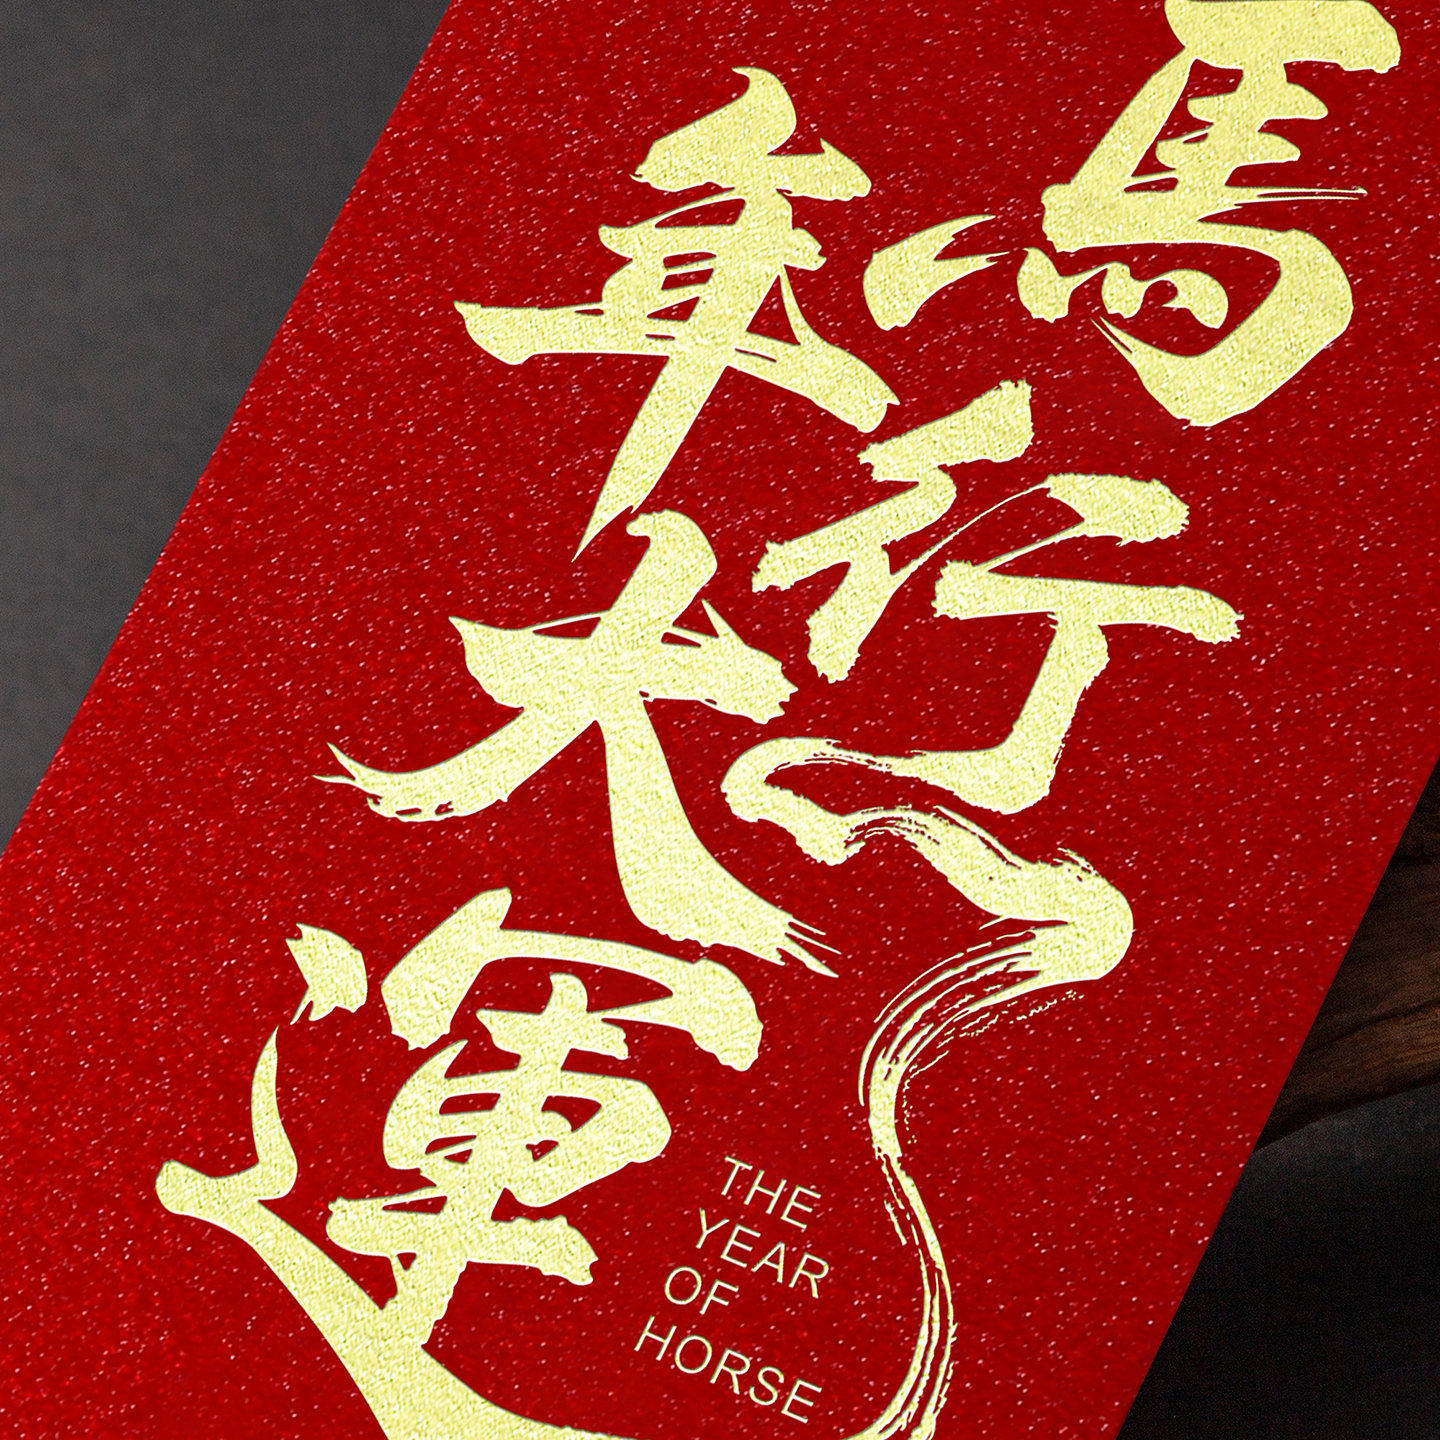 馬年行大運
THE
YEAR
OF
HORSE